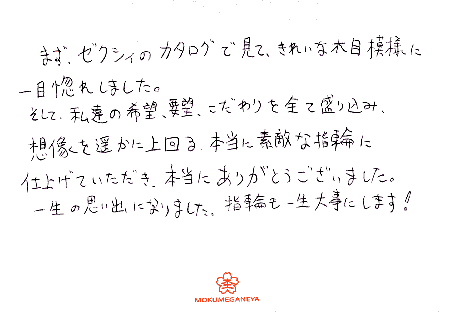 まず、ゼクシィのカタログで見て、きれいな木目模様に
一目惚れしました。
そして、私達の希望、要望、こだわりを全て盛り込み、
想像を遥かに上回る、本当に素敵な指輪に
仕上げていただき、本当にありがとうございました。
一生の思い出になりました。指輪も一生大事にします!
MOKUMEGANEYA